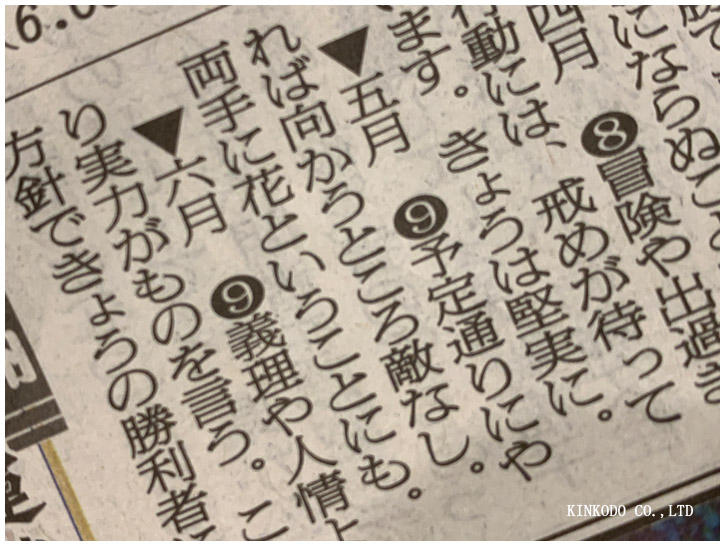 にならぬこと
四月 ❽冒険や出過ぎ
行動には、戒めが待って
ます。きょうは堅実に。
▼五月 ❾予定通りにや
れば向かうところ敵なし。
両手に花ということにも。
▼六月 ❾義理や人情よ
り実力がものを言う。こ
方針できょうの勝利者に
KINKODO CO.,LTD